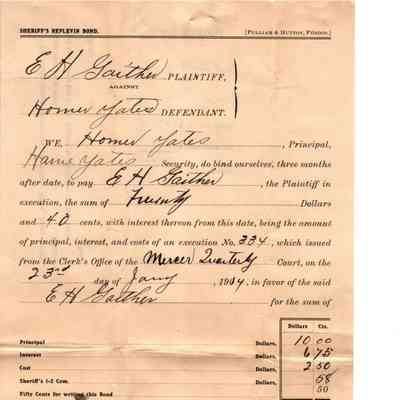 SHERIFF'S REPLEVIN BOND. [PULLIAM & HUTTON, PUBDOM.]
E H Gaither PLAINTIFF,
AGAINST
Homer Yates DEFENDANT.
WE, Homer Yates, Principal,
Yates Security, do bind ourselves, three months
after date, to pay E H Gaither, the Plaintiff in
execution, the sum of Twenty Dollars
and 40 cents, with interest thereon from this date, being the amount
of principal, interest, and costs of an execution No. 334, which issued
from the Clerk's Office of the Mercer Quarterly Court, on the
23rd day of Jany, 1914, in favor of the said
E H Gaither for the sum of
Dollars Cts.
Principal Dollars, 10 00
Interest Dollars, 6 75
Cost Dollars, 2 50
Sheriff's 1-2 Com. Dollars, 58
Fifty Cents for writing this Bond 50